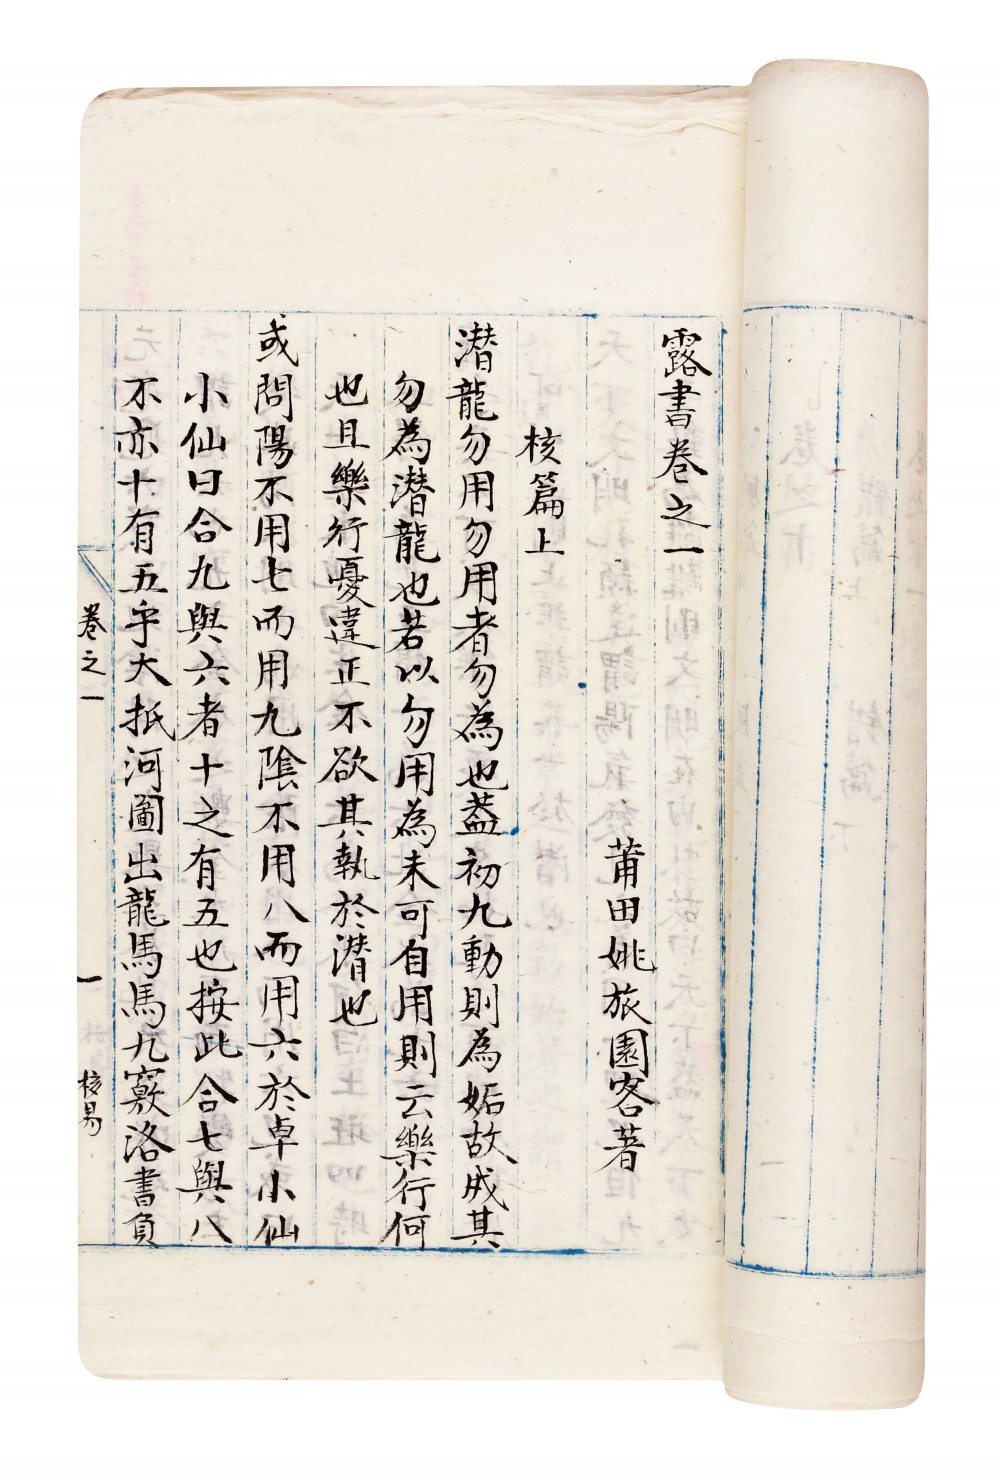 露書卷之一
莆田姚旅園客著
核篇上
潛龍勿用勿用者勿為也葢初九動則為姤故戒其
勿為潛龍也若以勿用為未可自用則云樂行何
也且樂行憂違正不欲其執於潛也
或問陽不用七而用九陰不用八而用六於卓小仙
小仙曰合九與六者十之有五也按此合七與八
不亦十有五乎大抵河圖出龍馬馬九竅洛書負
卷之一
一
核易